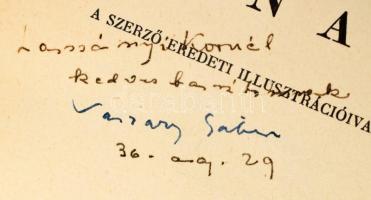 N A
A SZERZŐ EREDETI ILLUSZTRÁCIÓIVA
Kornél
kedves barátomnak
Vaszary Gábor
36. aug. 29